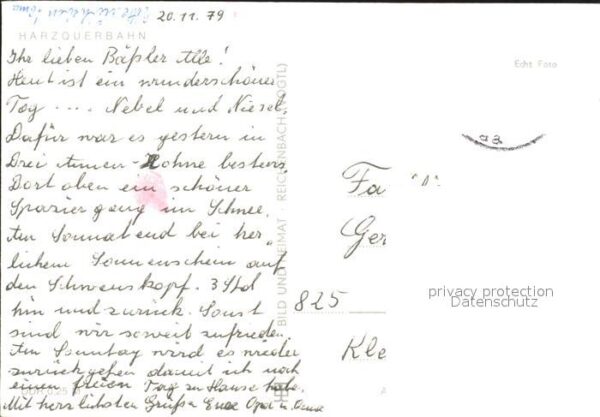 20.11.79
HARZQUERBAHN
Echt Foto
Ihr lieben Bäßler Alle!
Heut ist ein wunderschöner
Tog .... Nebel und Niesel.
Dafür war es gestern in
Drei Annen-Hohne bestens
Dort oben ein schöner
Spaziergang im Schnee.
Am Sonnabend bei herr-
lichem Sonnenschein auf
den Schwenskopf. 3 Std
hin und zurück. Sonst
sind wir soweit zufrieden
Am Sonntag wird es wieder
zurückgehen damit ich noch
einen freien Tag zu Hause habe.
Mit herzlichsten Grüßen Eure Opa u. Oma
BILD UND HEIMAT · REICHENBACH (VOGTL)
Fa
Ger
825
Kle
privacy protection
Datenschutz